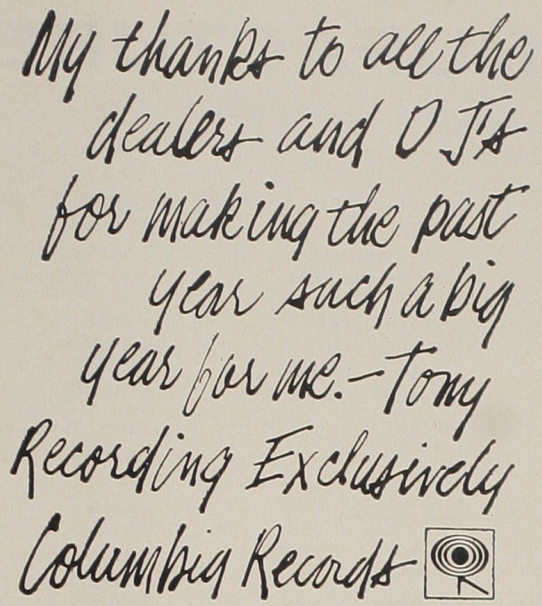 My thanks to all the
dealers and DJ's
for making the past
year such a big
year for me.-Tony
Recording Exclusively
Columbia Records